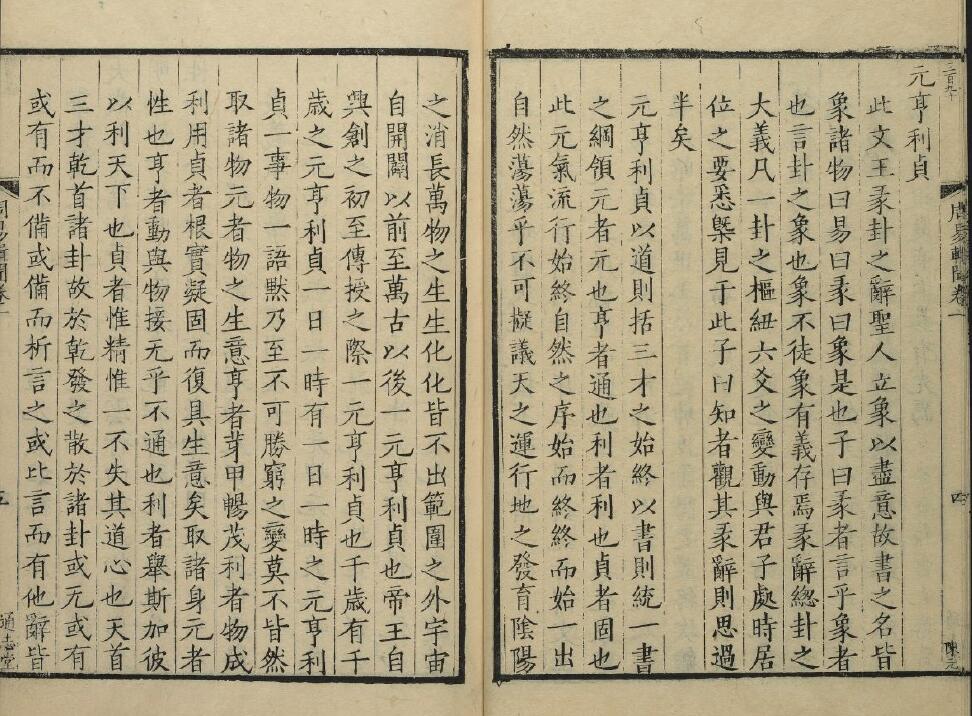 三百九十
元亨利貞
此文王彖卦之辭聖人立象以盡意故書之名皆
象諸物曰易曰彖曰象是也子曰彖者言乎象者
也言卦之象也象不徒象有義存焉彖辭緫卦之
大義凡一卦之樞紐六爻之變動與君子處時居
位之要悉槩見于此子曰知者觀其彖辭則思過
半矣
元亨利貞以道則括三才之始終以書則統一書
之綱領元者元也亨者通也利者利也貞者固也
此元氣流行始終自然之序始而終終而始一出
自然蕩蕩乎不可擬議天之運行地之發育陰陽
之消長萬物之生生化化皆不出範圍之外宇宙
自開闢以前至萬古以後一元亨利貞也帝王自
興創之初至傳授之際一元亨利貞也千歲有千
歲之元亨利貞一日一時有一日一時之元亨利
貞一事物一語默乃至不可勝窮之變莫不皆然
取諸物元者物之生意亨者芽甲暢茂利者物成
利用貞者根實凝固而復具生意矣取諸身元者
性也亨者動與物接无乎不通也利者舉斯加彼
以利天下也貞者惟精惟一不失其道心也天首
三才乾首諸卦故於乾發之散於諸卦或无或有
或有而不備或備而析言之或比言而有他辭皆
周易輯聞卷一
四
陳元
五
通志堂